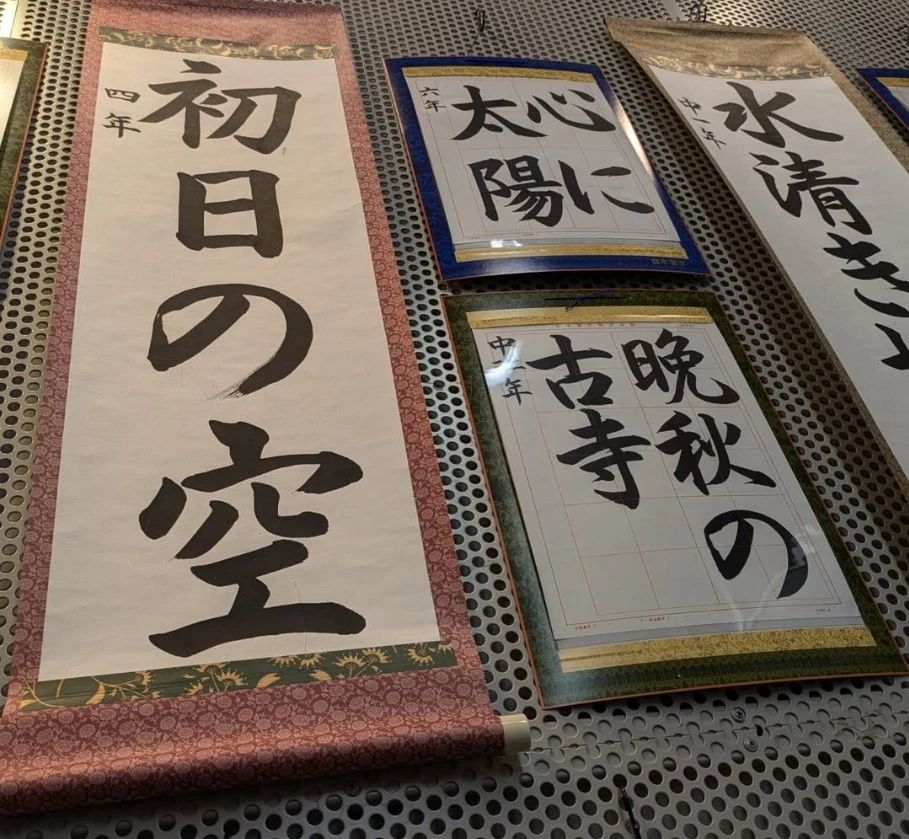 初日の空
四年
心に
太陽
六年
晩秋の
古寺
中二年
水清き
中一年